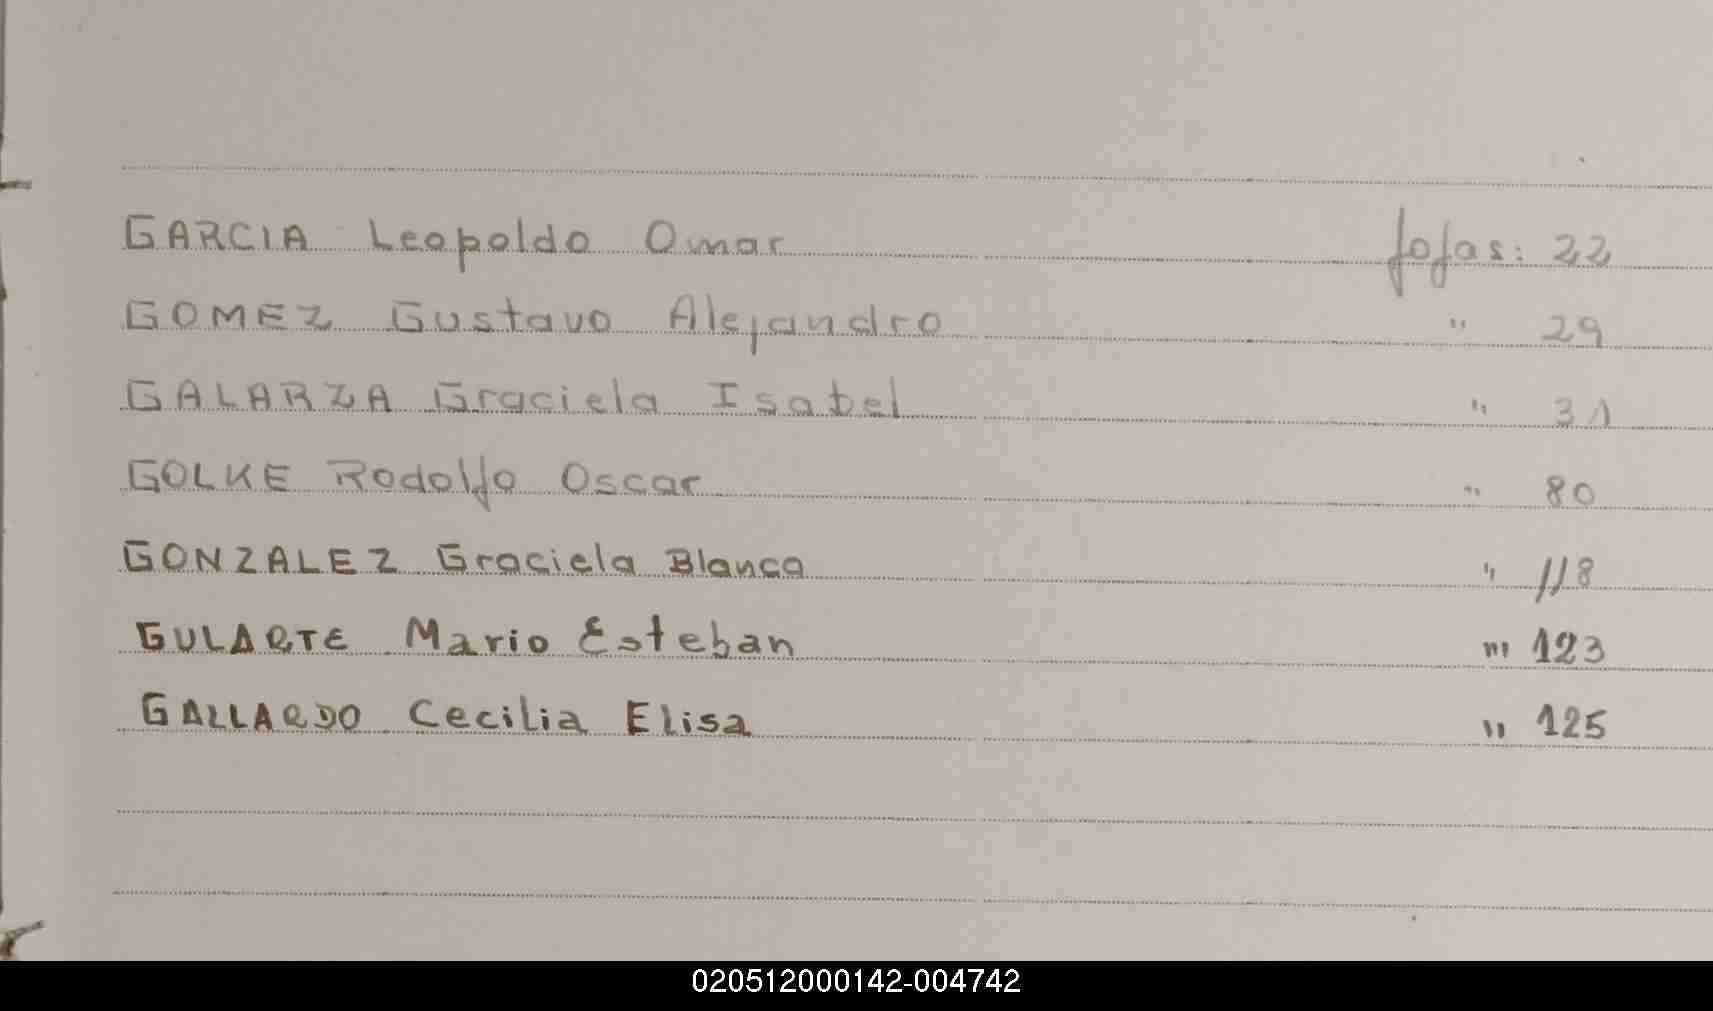 GARCIA Leopoldo Omar fojas: 22
GOMEZ Gustavo Alejandro " 29
GALARZA Graciela Isabel " 31
GOLKE Rodolfo Oscar " 80
GONZALEZ Graciela Blanca " 118
GULARTE Mario Esteban "' 123
GALLARDO Cecilia Elisa " 125
020512000142-004742